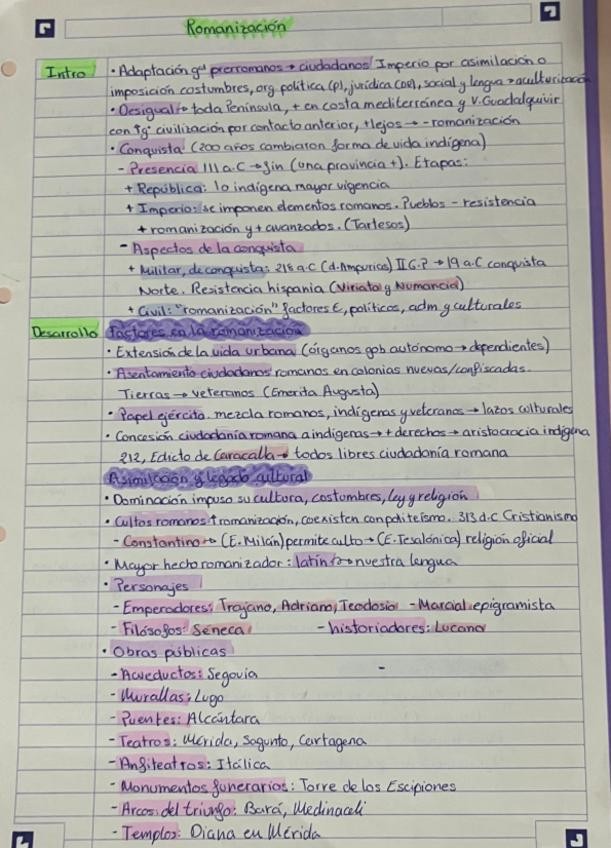 Romanización
Intro
• Adaptación gª prerromanos → ciudadanos Imperio por asimilación o
imposición costumbres, org. política (p), jurídica (DR), social y lengua → aculturización
• Desigual → toda Península, + en costa mediterránea y V. Guadalquivir
con civilización por contacto anterior, + lejos → - romanización
• Conquista (200 años cambiaron forma de vida indígena)
- Presencia III a.C → fin (una provincia +). Etapas:
+ República: lo indígena mayor vigencia
+ Imperio: se imponen elementos romanos. Pueblos - resistencia
+ romanización y + avanzados. (Tartesos)
- Aspectos de la conquista
+ Militar, de conquista: 218 a.C (d. Ampurias) II G.P → 19 a.C conquista
Norte. Resistencia hispania (Viriato y Numancia)
+ Civil: "romanización" factores €, políticos, adm y culturales
Desarrollo
Factores en la romanización
• Extensión de la vida urbana (órganos gob autónomo → dependientes)
• Asentamiento ciudadanos romanos en colonias nuevas/confiscadas.
Tierras → veteranos (Emerita Augusta)
• Papel ejército. mezcla romanos, indígenas y veteranos → lazos culturales
• Concesión ciudadanía romana a indígenas → + derechos → aristocracia indígena
212, Edicto de Caracalla → todos libres ciudadanía romana
Asimilación y legado cultural
• Dominación impuso su cultura, costumbres, ley y religión
• Cultos romanos ↑ romanización, coexisten con politeísmo. 313 d.C Cristianismo
- Constantino → (E. Milán) permite culto → (E. Tesalónica) religión oficial
• Mayor hecho romanizador: latín → nuestra lengua
• Personajes
- Emperadores: Trajano, Adriano, Teodosio - Marcial epigramista
- Filósofos: Séneca - historiadores: Lucano
• Obras públicas
- Acueductos: Segovia
- Murallas: Lugo
- Puentes: Alcántara
- Teatros: Mérida, Sagunto, Cartagena
- Anfiteatros: Itálica
- Monumentos funerarios: Torre de los Escipiones
- Arcos del triunfo: Bará, Medinaceli
- Templos: Diana en Mérida